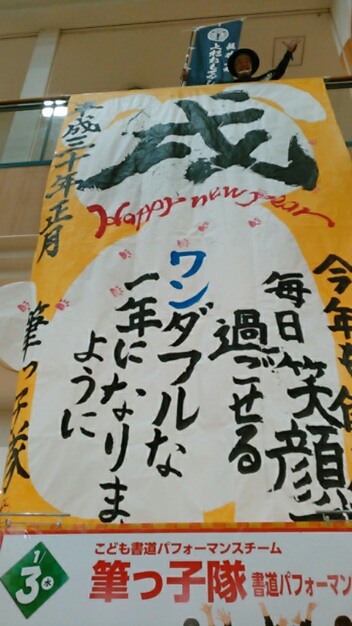 戌
Happy new year
今年も
毎日笑顔
過ごせる
ワンダフルな
一年になりま
ように
平成三十年正月
筆っ子隊
1/3 水
こども書道パフォーマンスチーム
筆っ子隊 書道パフォーマン